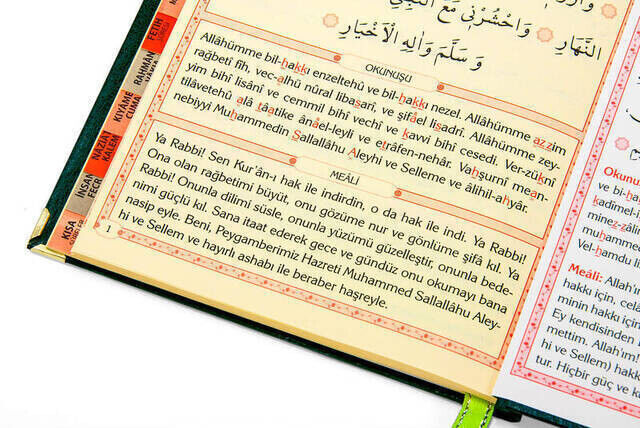 النَّهَارِ وَاحْشُرْنِي مَعَ النَّبِيِّ
وَسَلَّمَ وَاٰلِهِ الْاَخْيَارِ
OKUNUŞU
Allâhümme bil-hakkı enzeltehû ve bil-hakkı nezel. Allâhümme azzim
rağbetî fîh, vec-alhü nûral libasarî, ve şifâel lisadrî. Allâhümme zey-
yim bihî lisânî ve cemmil bihî vechî ve kavvi bihî cesedî. Ver-züknî
tilâvetehû alâ tâatike ânâel-leyli ve etrâfen-nehâr. Vahşurnî mean-
nebiyyi Muhammedin Sallallâhu Aleyhi ve Selleme ve âlihil-ahyâr.
MEÂLİ
Ya Rabbi! Sen Kur'ân-ı hak ile indirdin, o da hak ile indi. Ya Rabbi!
Ona olan rağbetimi büyüt, onu gözüme nur ve gönlüme şifâ kıl. Ya
Rabbi! Onunla dilimi süsle, onunla yüzümü güzelleştir, onunla bede-
nimi güçlü kıl. Sana itaat ederek gece ve gündüz onu okumayı bana
nasip eyle. Beni, Peygamberimiz Hazreti Muhammed Sallallâhu Aley-
hi ve Sellem ve hayırlı ashabı ile beraber haşreyle.
1
FETİH
RAHMÂN
KIYÂME
CUMA
NÂZİAT
KALEM
İNSAN
FECR
KISA
Okunu
ve bi-h
kadîmel
minez-zâli
muhamme
Vel-hamdu l
Meâli: Allah'ı
hakkı için, ce
minin hakkı iç
Ey kendisinden
mettim. Allah'ım!
hi ve Sellem) hakk
tur. Hiçbir güç ve k